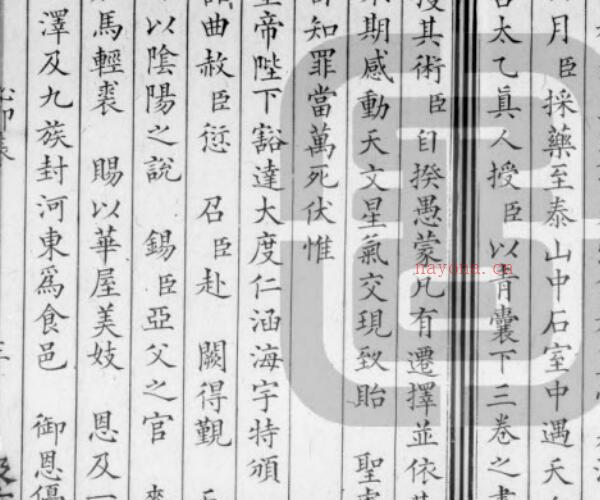 月臣採藥至泰山中石室中遇天
太乙真人授臣以青囊下三卷之書
授其術臣自揆愚蒙凡有遷擇並依
期感動天文星氣交現致貽 聖
知罪當萬死伏惟
皇帝陛下豁達大度仁涵海宇特頒
曲赦臣愆 召臣赴 闕得覲
以陰陽之說 錫臣亞父之官
馬輕裘 賜以華屋美妓 恩及一
澤及九族封河東爲食邑 御恩
nayona.cn